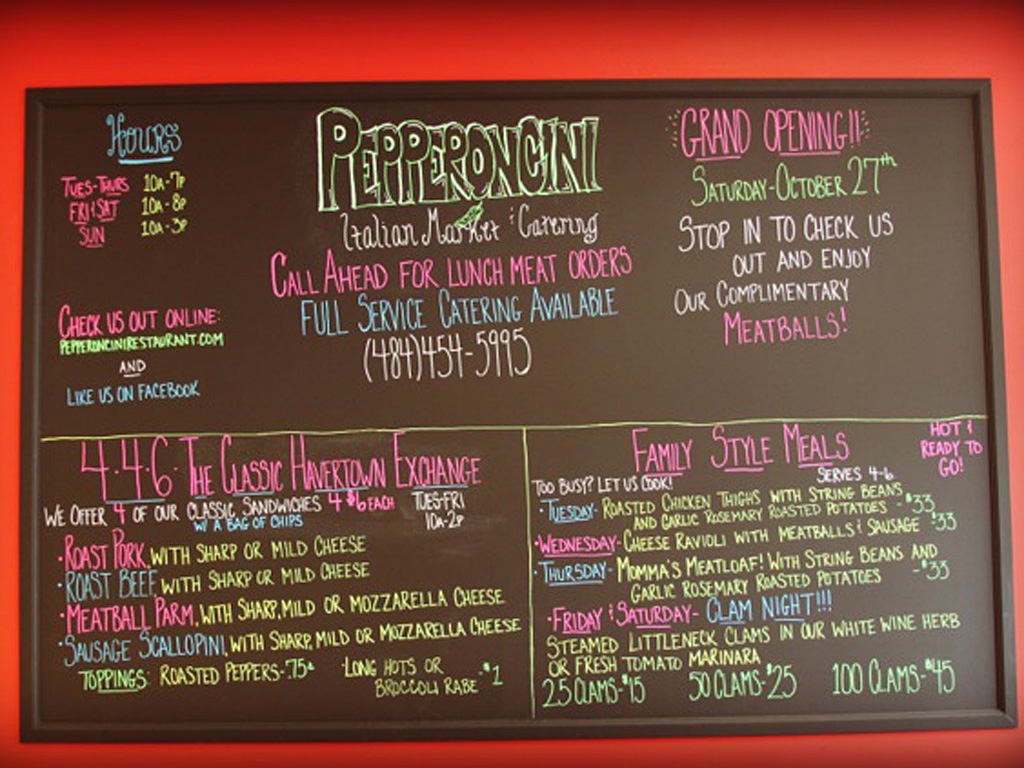 Hours
Tues-Thurs 10a-7p
Fri & Sat 10a-8p
Sun 10a-3p
Check us out online:
pepperoncinirestaurant.com
and
Like us on Facebook
Pepperoncini
Italian Market & Catering
Call Ahead for lunch meat orders
Full Service Catering Available
(484)454-5995
Grand Opening!!
Saturday-October 27th
Stop in to check us
out and enjoy
Our Complimentary
Meatballs!
4·4·6· The Classic Havertown Exchange
We offer 4 of our classic sandwiches 4 $6 each
w/ a bag of chips
Tues-Fri
10a-2p
·Roast Pork, with sharp or mild cheese
·Roast Beef, with sharp or mild cheese
·Meatball Parm, with sharp, mild or mozzarella cheese
·Sausage Scallopini, with sharp, mild or mozzarella cheese
Toppings: Roasted Peppers-.75¢
·Long hots or
Broccoli Rabe -$1
Family Style Meals
Hot &
Ready to
Go!
Too busy? Let us cook!
Serves 4-6
·Tuesday- Roasted Chicken Thighs with String Beans
and Garlic Rosemary Roasted Potatoes -$33
·Wednesday- Cheese Ravioli with Meatballs & Sausage $33
·Thursday- Momma's Meatloaf! With String Beans and
Garlic Rosemary Roasted Potatoes -$33
·Friday & Saturday- Clam Night!!!
Steamed Littleneck Clams in our white wine herb
or fresh tomato marinara
25 Clams-$15 50 Clams-$25 100 Clams-$45